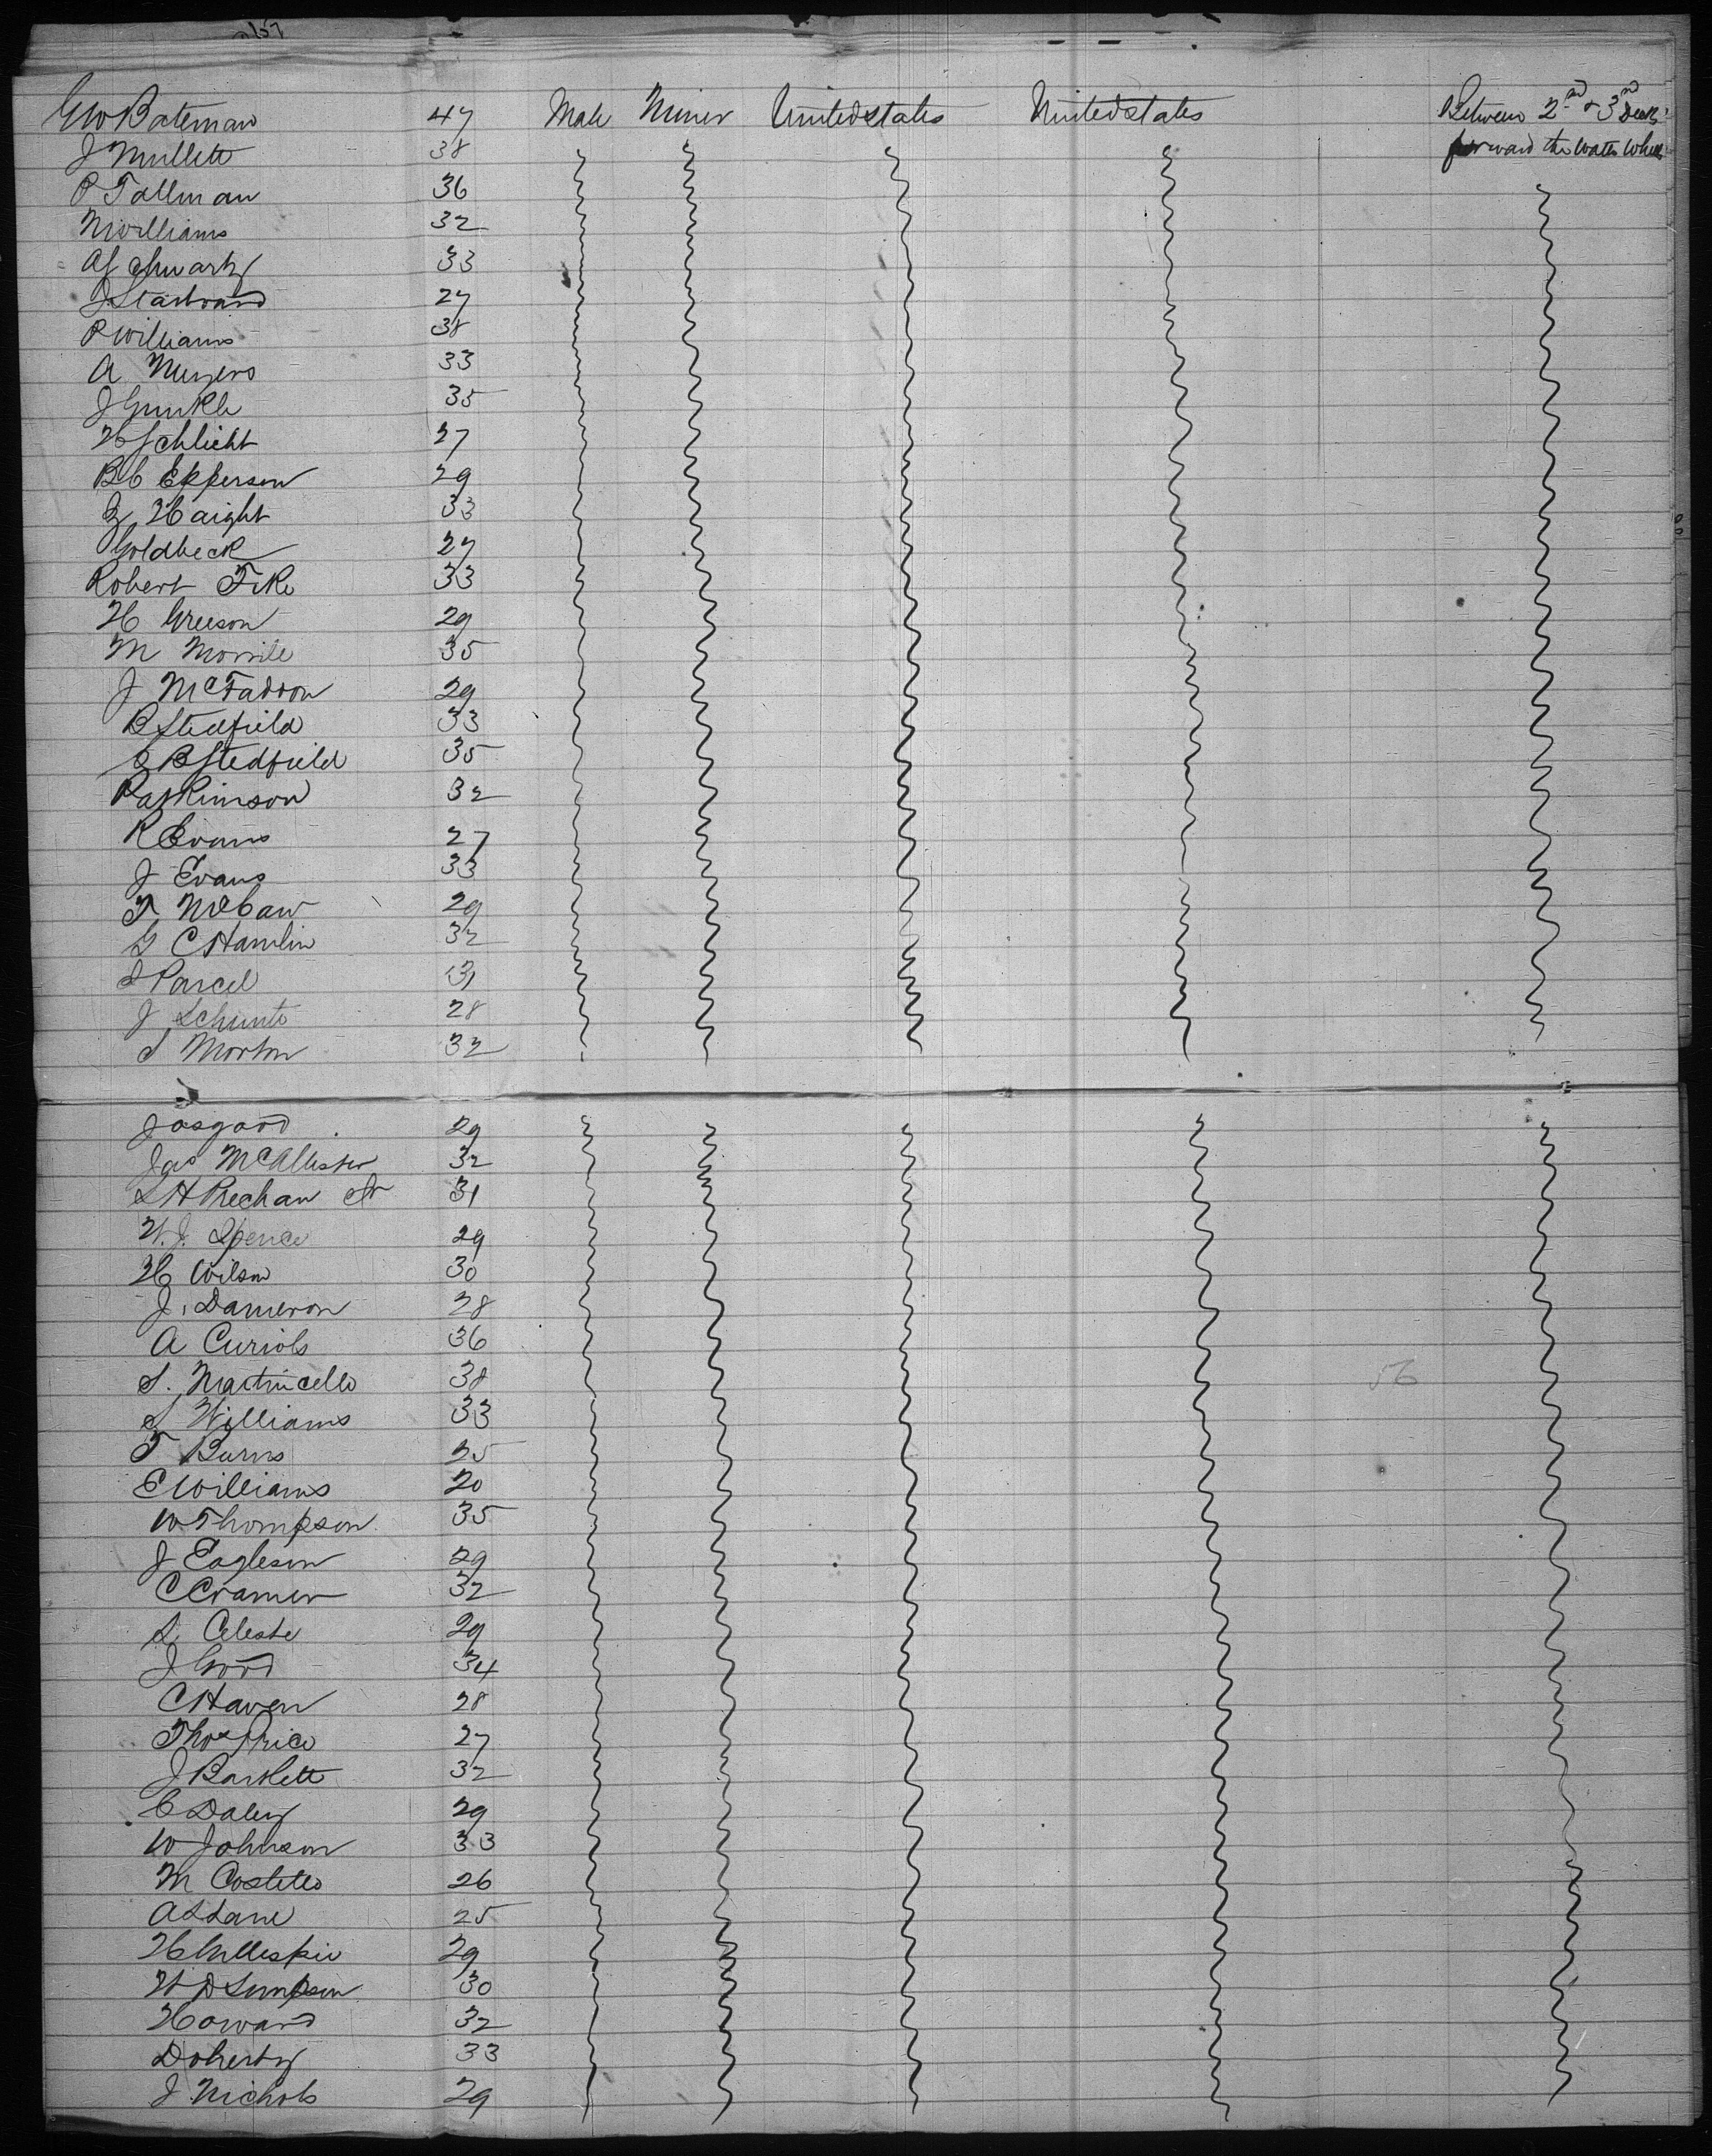 GW Bateman 47 Male Miner United states United states Between 2nd & 3rd Decks
J Mullett 38 forward the Water Wheel
P Tallman 36
Williams 32
A Schwartz 33
J Starboard 27
P Williams 38
A Meyers 33
J Gunkle 35
H Schlicht 27
BC Epperson 29
Z Haight 33
Goldbeck 27
Robert Fike 33
H Greeson 29
M Morrill 35
J McFaddon 29
B Stedfield 33
B Stedfield 35
Parkinson 32
R Evans 27
J Evans 33
F McCaw 29
G C Hamlin 32
J Parcel 31
J Schunte 28
S Morton 32
J Osgood 29
Jas McAllister 32
L H Prechaw Sr 31
W.J. Spence 29
H Wilson 30
J. Dameron 28
A Curiols 36
S. Martincello 38
S Williams 33
T Burns 25
E Williams 20
W Thompson 35
J Eagleson 29
C Cramer 32
S. Celeste 29
J Good 34
C Haven 28
Thos Price 27
J Bartlett 32
C Daley 29
W Johnson 33
M Costello 26
A S Lane 25
H Gillespie 29
W D Simpson 30
Howard 32
Doherty 33
J Nichols 29